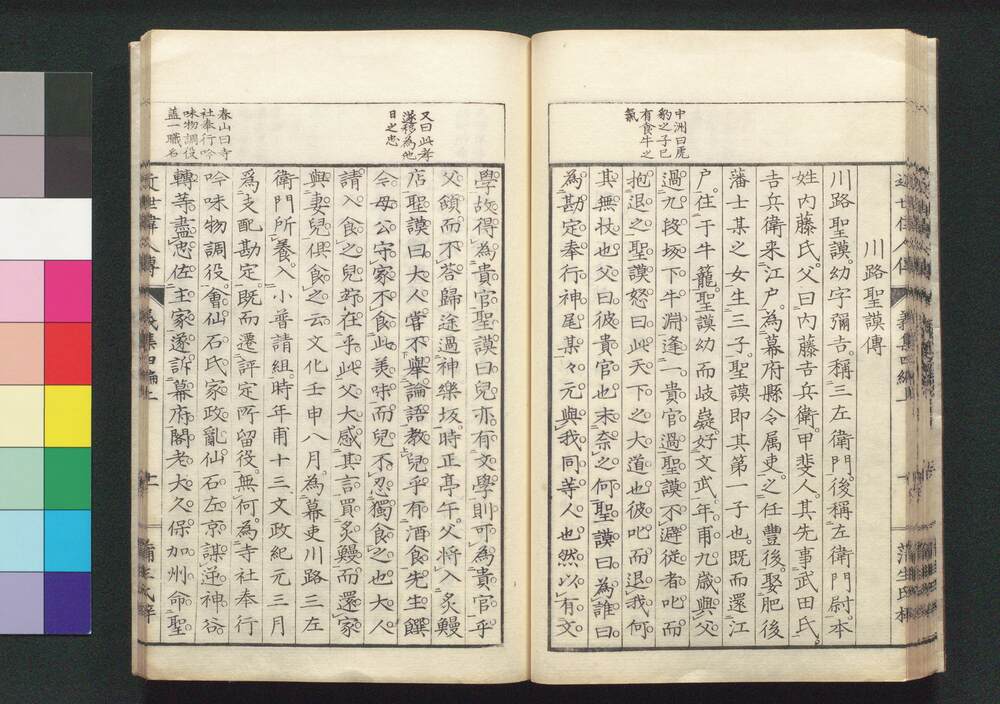 中洲曰虎
豹之子已
有食牛之
氣
川路聖謨傳
川路聖謨。幼字彌吉。稱三左衛門。後稱左衛門尉。本
姓內藤氏。父曰內藤吉兵衛。甲斐人。其先事武田氏。
吉兵衛来江户。為幕府縣令属吏。之任豐後。娶肥後
藩士某之女。生三子。聖謨即其第一子也。既而還江
户。住于牛籠。聖謨幼而岐嶷。好文武。年甫九歲。與父
過九段坂下牛淵。逢一貴官過。聖謨不避。従者叱而
抱退之。聖謨怒曰。此天下之大道也。彼叱而退我。何
其無状也。父曰。彼貴官也。末奈之何。聖謨曰。為誰。曰。
為勘定奉行神尾某。某元與我同等人也。然以有文
又曰此孝
遂移為他
日之忠
春山曰寺
社奉行吟
味物調役
蓋一職名
學故得為貴官。聖謨曰。兒亦有文學則可為貴官乎。
父頷而不答。歸途過神樂坂。時正亭午。父將入炙鰻
店。聖謨曰。大人嘗不舉論語教兒乎。有酒食先生饌。
今母公守家。不食此美味。而兒不忍獨食之也。大人
請入食之。兒竢在乎此。父大感其言。買炙鰻而還家。
與妻兒俱食之云。文化壬申八月。為幕吏川路三左
衛門所養。入小普請組。時年甫十三。文政紀元三月
為支配勘定。既而遷評定所留役。無何為寺社奉行
吟味物調役。會仙石氏家政亂。仙石左京謀逆。神谷
轉等盡忠佐主家。遂訴幕府。閣老大久保加州命聖
近世偉人傳
義集四編上
二
蒲生氏梓